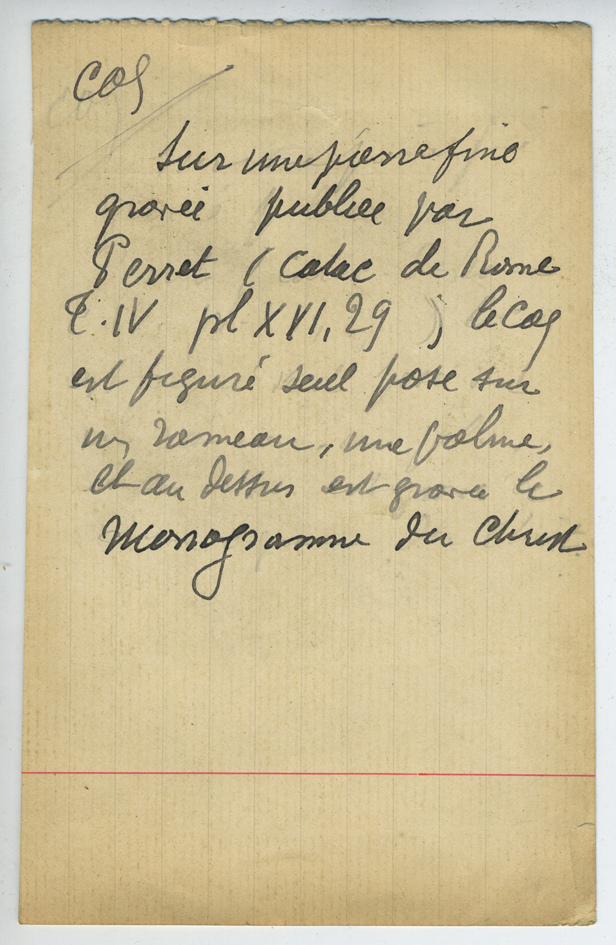 Coq
Sur une pierre fine
gravée publiée par
Perret ( Catac de Rome
T. IV pl XVI, 29 ) le coq
est figuré seul posé sur
un rameau, une palme,
et au dessus est gravé le
Monogramme du Christ